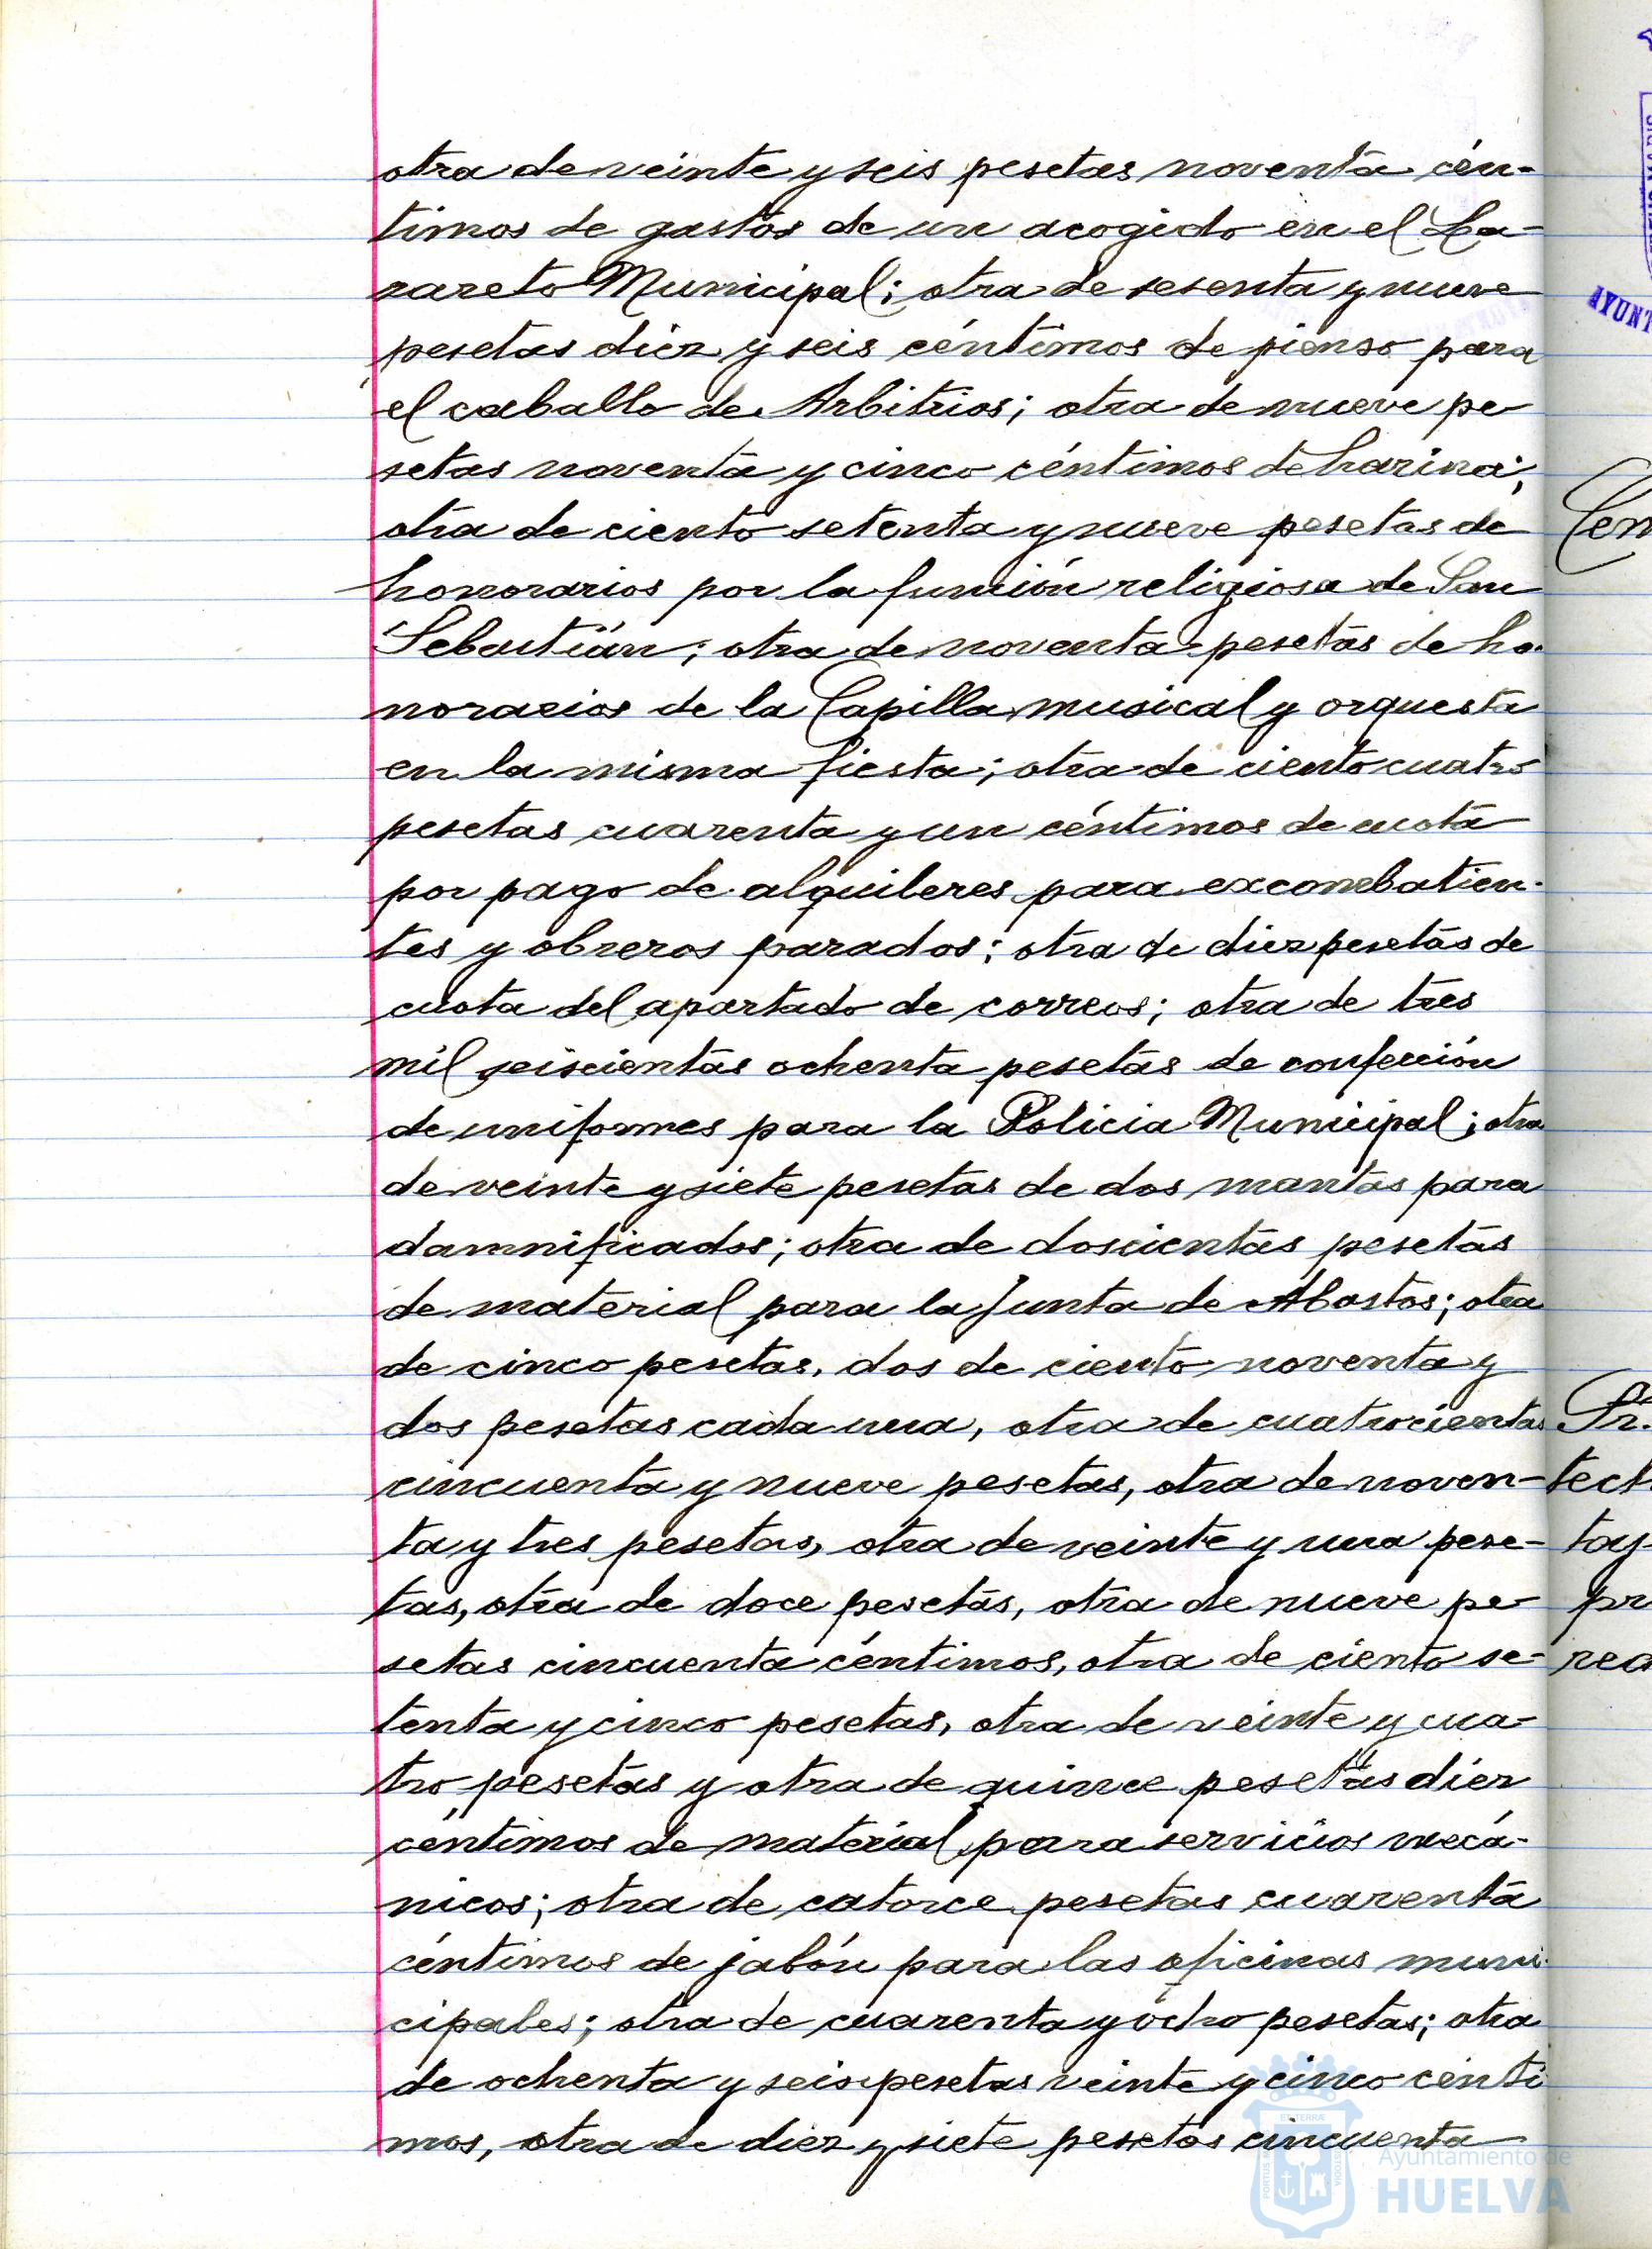 otra de veinte y seis pesetas noventa cén-
timos de gastos de un acogido en el La-
zareto Municipal; otra de sesenta y nueve
pesetas diez y seis céntimos de pienso para
el caballo de Arbitrios; otra de nueve pe
setas noventa y cinco céntimos de harina;
otra de ciento setenta y nueve pesetas de
honorarios por la función religiosa de San
Sebastián; otra de noventa pesetas de ho-
norarios de la Capilla musical y orquesta
en la misma fiesta; otra de ciento cuatro
pesetas cuarenta y un céntimos de cuota
por pago de alquileres para excombatien-
tes y obreros parados; otra de diez pesetas de
cuota del apartado de correos; otra de tres
mil seiscientas ochenta pesetas de confección
de uniformes para la Policia Municipal; otra
de veinte y siete pesetas de dos mantas para
damnificados; otra de doscientas pesetas
de material para la Junta de Abastos; otra
de cinco pesetas, dos de ciento noventa y
dos pesetas cada una, otra de cuatrocientas
cincuenta y nueve pesetas, otra de noven-
ta y tres pesetas, otra de veinte y una pese-
tas, otra de doce pesetas, otra de nueve pe-
setas cincuenta céntimos, otra de ciento se-
tenta y cinco pesetas, otra de veinte y cua-
tro pesetas y otra de quince pesetas diez
céntimos de material para servicios mecá-
nicos; otra de catorce pesetas cuarenta
céntimos de jabón para las oficinas muni-
cipales; otra de cuarenta y ocho pesetas; otra
de ochenta y seis pesetas veinte y cinco cénti
mos, otra de diez y siete pesetas cincuenta
Ayuntamiento de
HUELVA
AYUNT
Cen
Pr.
tect
tay
pr
rea